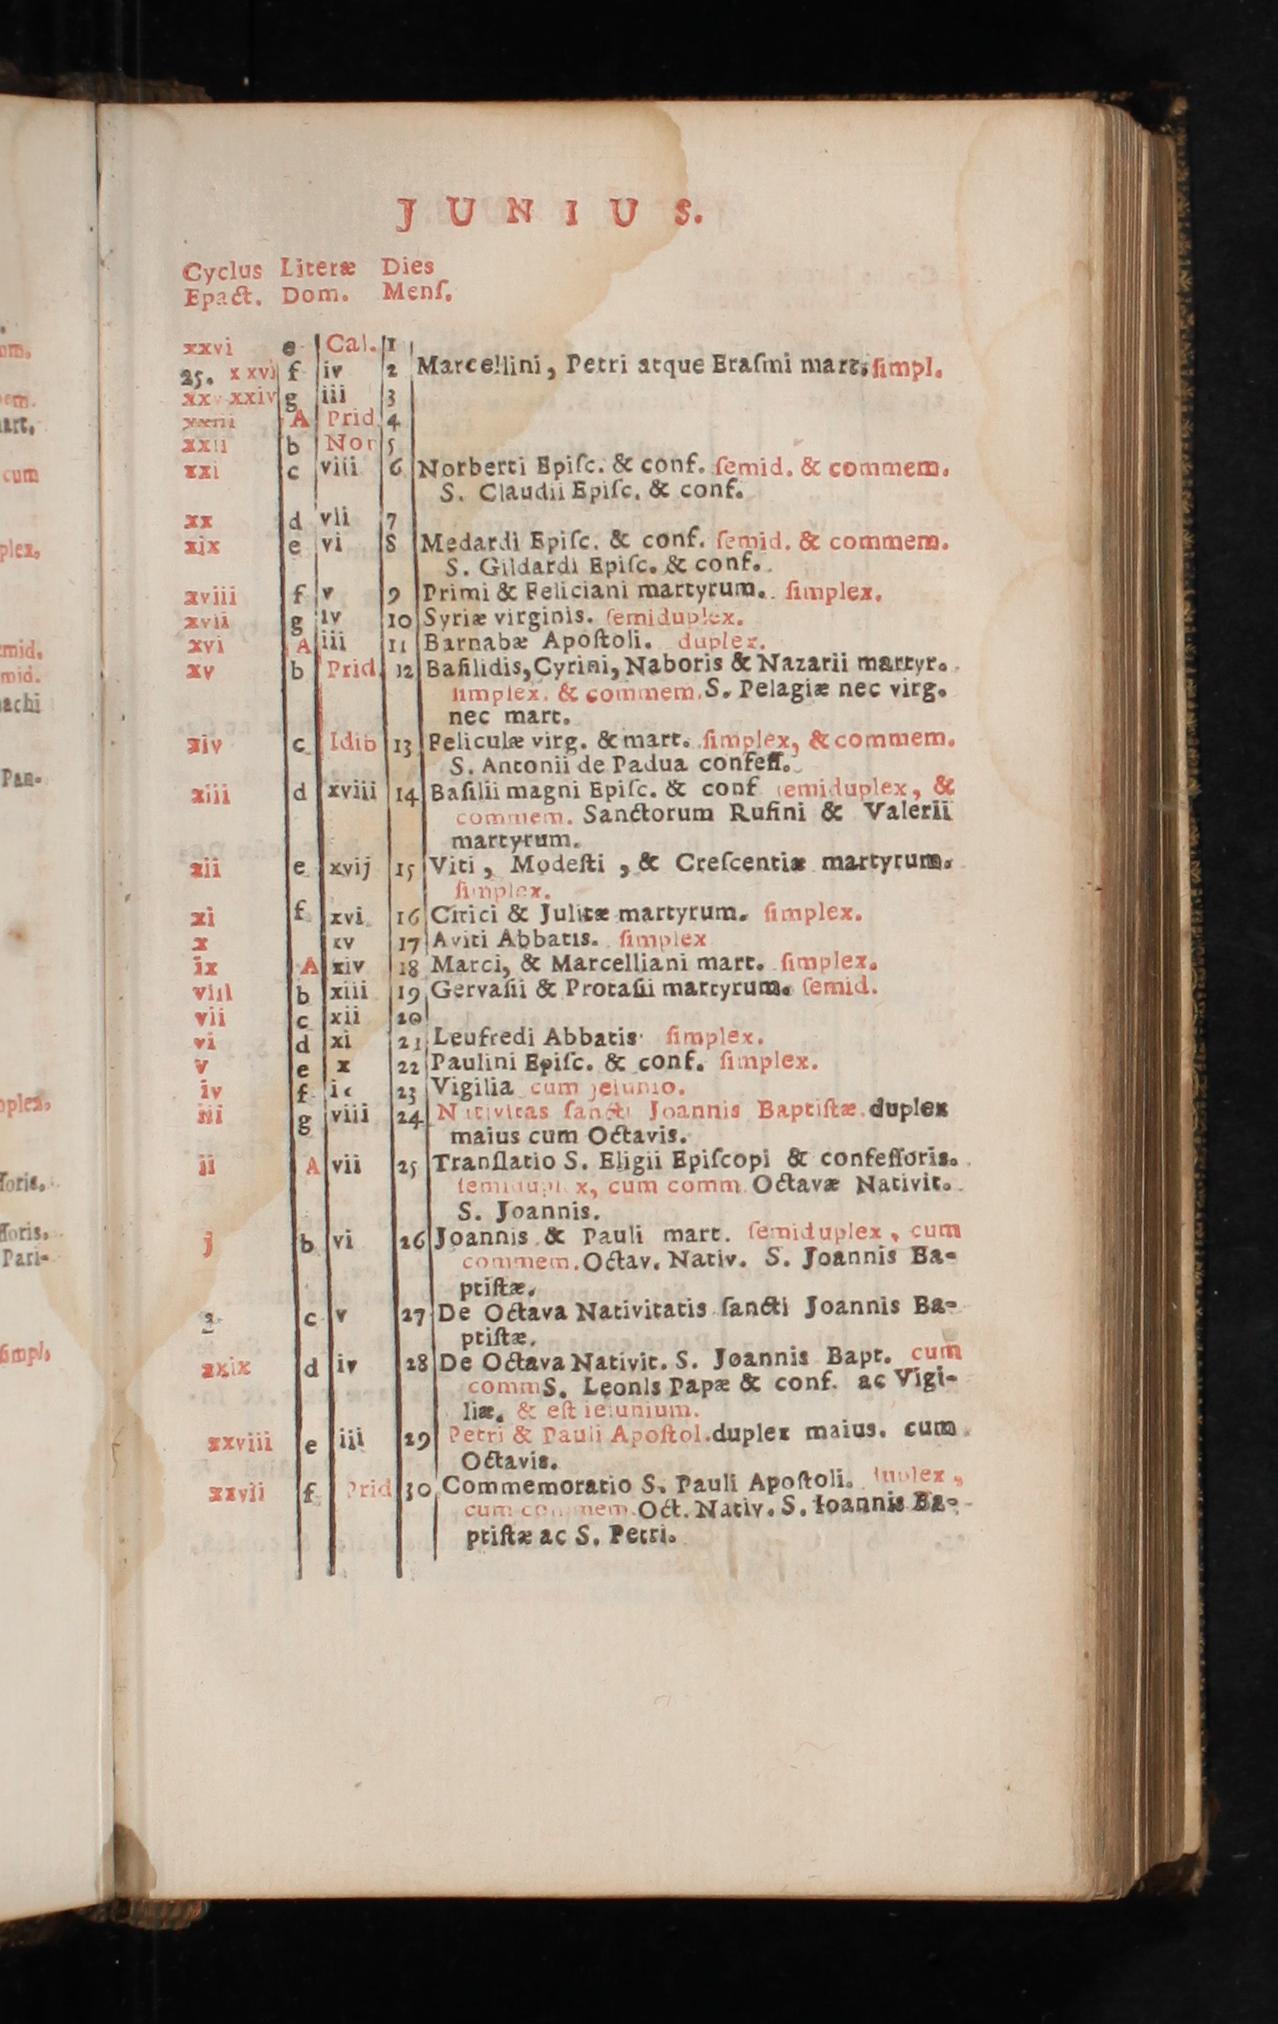 JUNIUS.
Cyclus Literæ Dies
Epact. Dom. Menſ.
xxvi e Cal. 1
25. xxv f iv 2 Marcellini, Petri atque Eraſmi mart. ſimpl.
xxv xxiv g iii 3
xxiii A Prid 4
xxii b Non 5
xxi c viii 6 Norberti Epiſc. & conf. ſemid. & commem.
S. Claudii Epiſc. & conf.
xx d vii 7
xix e vi 8 Medardi Epiſc. & conf. ſemid. & commem.
S. Gildardi Epiſc. & conf.
xviii f v 9 Primi & Feliciani martyrum. ſimplex.
xvii g iv 10 Syriæ virginis. ſemiduplex.
xvi A iii 11 Barnabæ Apoſtoli. duplex.
xv b Prid. 12 Baſilidis, Cyrini, Naboris & Nazarii martyr.
ſimplex. & commem. S. Pelagiæ nec virg.
nec mart.
xiv c Idib 13 Feliculæ virg. & mart. ſimplex, & commem.
S. Antonii de Padua confeſſ.
xiii d xviii 14 Baſilii magni Epiſc. & conf ſemiduplex, &
commem. Sanctorum Rufini & Valerii
martyrum.
xii e xvij 15 Viti, Modeſti, & Creſcentiæ martyrum.
ſimplex.
xi f xvi 16 Cirici & Julitæ martyrum. ſimplex.
x xv 17 Aviti Abbatis. ſimplex
ix A xiv 18 Marci, & Marcelliani mart. ſimplex.
viii b xiii 19 Gervaſii & Protaſii martyrum. ſemid.
vii c xii 20
vi d xi 21 Leufredi Abbatis. ſimplex.
v e x 22 Paulini Epiſc. & conf. ſimplex.
iv f ix 23 Vigilia cum jeiunio.
iii g viii 24 Nativitas ſancti Joannis Baptiſtæ. duplex
maius cum Octavis.
ii A vii 25 Tranſlatio S. Eligii Epiſcopi & confeſſoris.
ſemiduplex, cum comm. Octavæ Nativit.
S. Joannis.
j b vi 26 Joannis & Pauli mart. ſemiduplex, cum
commem. Octav. Nativ. S. Joannis Ba-
ptiſtæ.
c v 27 De Octava Nativitatis ſancti Joannis Ba-
ptiſtæ.
xxix d iv 28 De Octava Nativit. S. Joannis Bapt. cum
comm S. Leonis Papæ & conf. ac Vigi-
liæ. & eſt ieiunium.
xxviii e iii 29 Petri & Pauli Apoſtol. duplex maius. cum
Octavis.
xxvii f Prid 30 Commemoratio S. Pauli Apoſtoli. duplex,
cum commem. Oct. Nativ. S. Ioannis Ba-
ptiſtæ ac S. Petri.